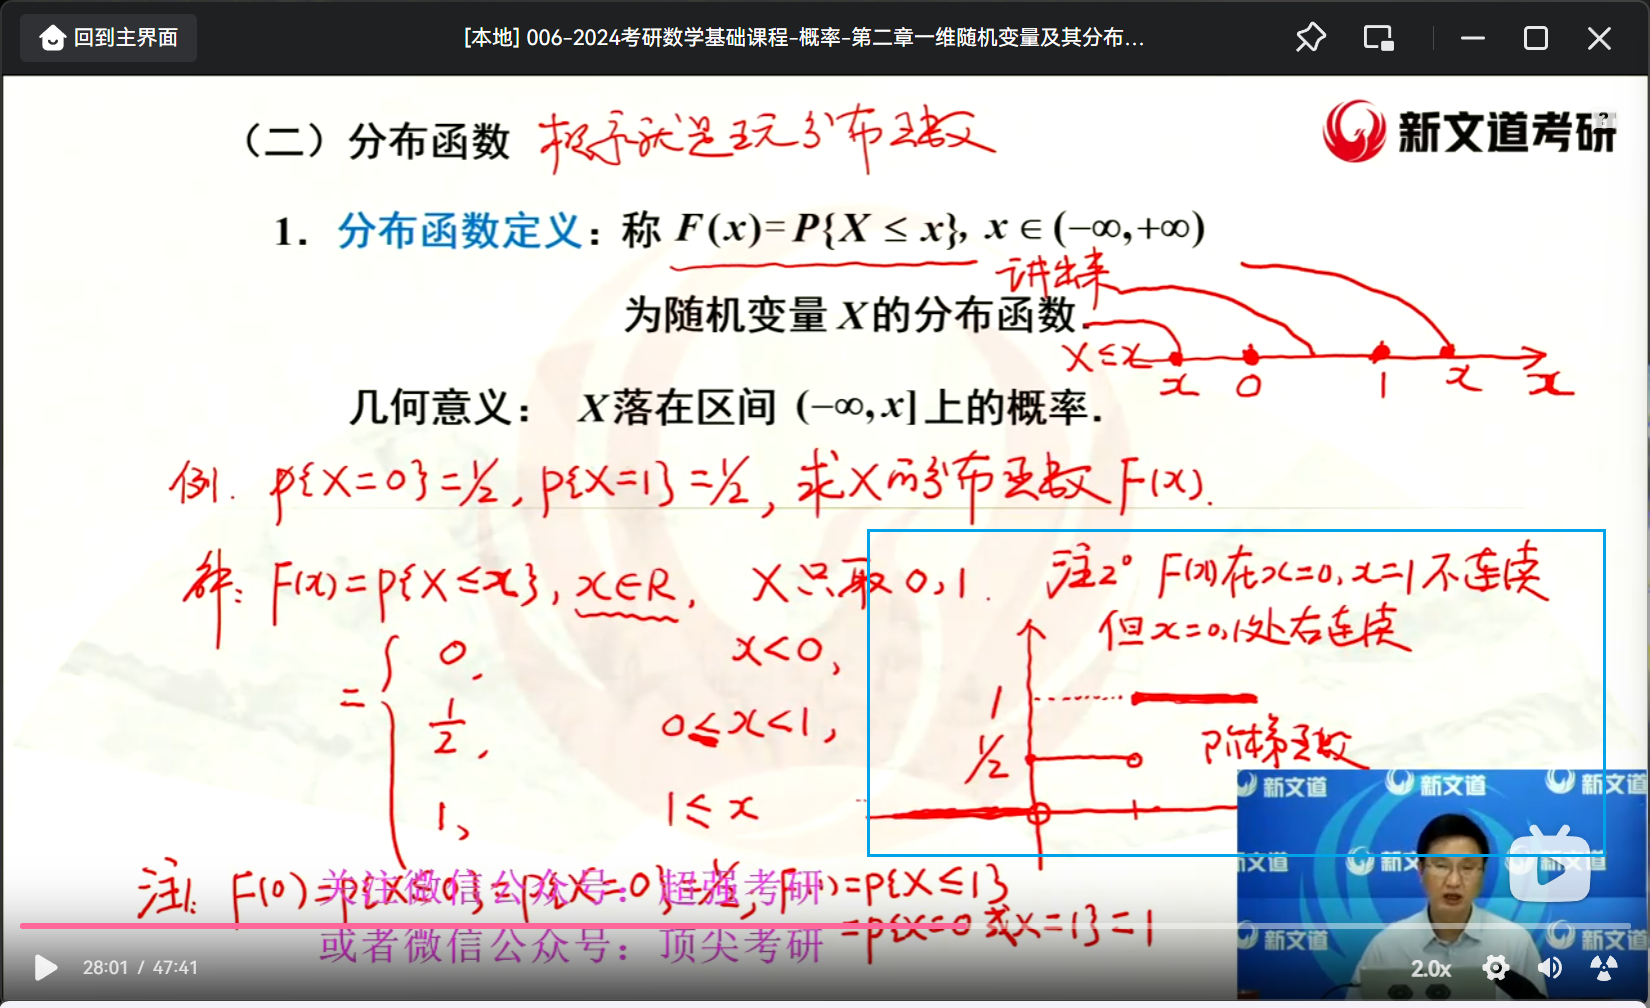 回到主界面
[本地] 006-2024考研数学基础课程-概率-第二章一维随机变量及其分布...
(二) 分布函数 概率就是玩分布函数
新文道考研
1. 分布函数定义: 称 F(x)=P{X ≤ x}, x∈(−∞,+∞)
讲出来
为随机变量 X 的分布函数.
X≤x
x 0 1 x x
几何意义: X落在区间 (−∞,x]上的概率.
例. P{X=0}=1/2, P{X=1}=1/2, 求X的分布函数F(x).
解: F(x)=P{X≤x}, x∈R, X只取0,1.
= { 0, x<0,
1/2, 0≤x<1,
1, 1≤x
注2° F(x)在x=0,x=1不连续
但x=0,1处右连续
1
1/2
阶梯函数
注1: F(0)=P{X≤0}=P{X=0}=1/2, F(1)=P{X≤1}
=P{X=0或X=1}=1
关注微信公众号: 超强考研
或者微信公众号: 顶尖考研
新文道 新文道 新文道
文道 新文 新文道
新文道 新文道
28:01 / 47:41
2.0x